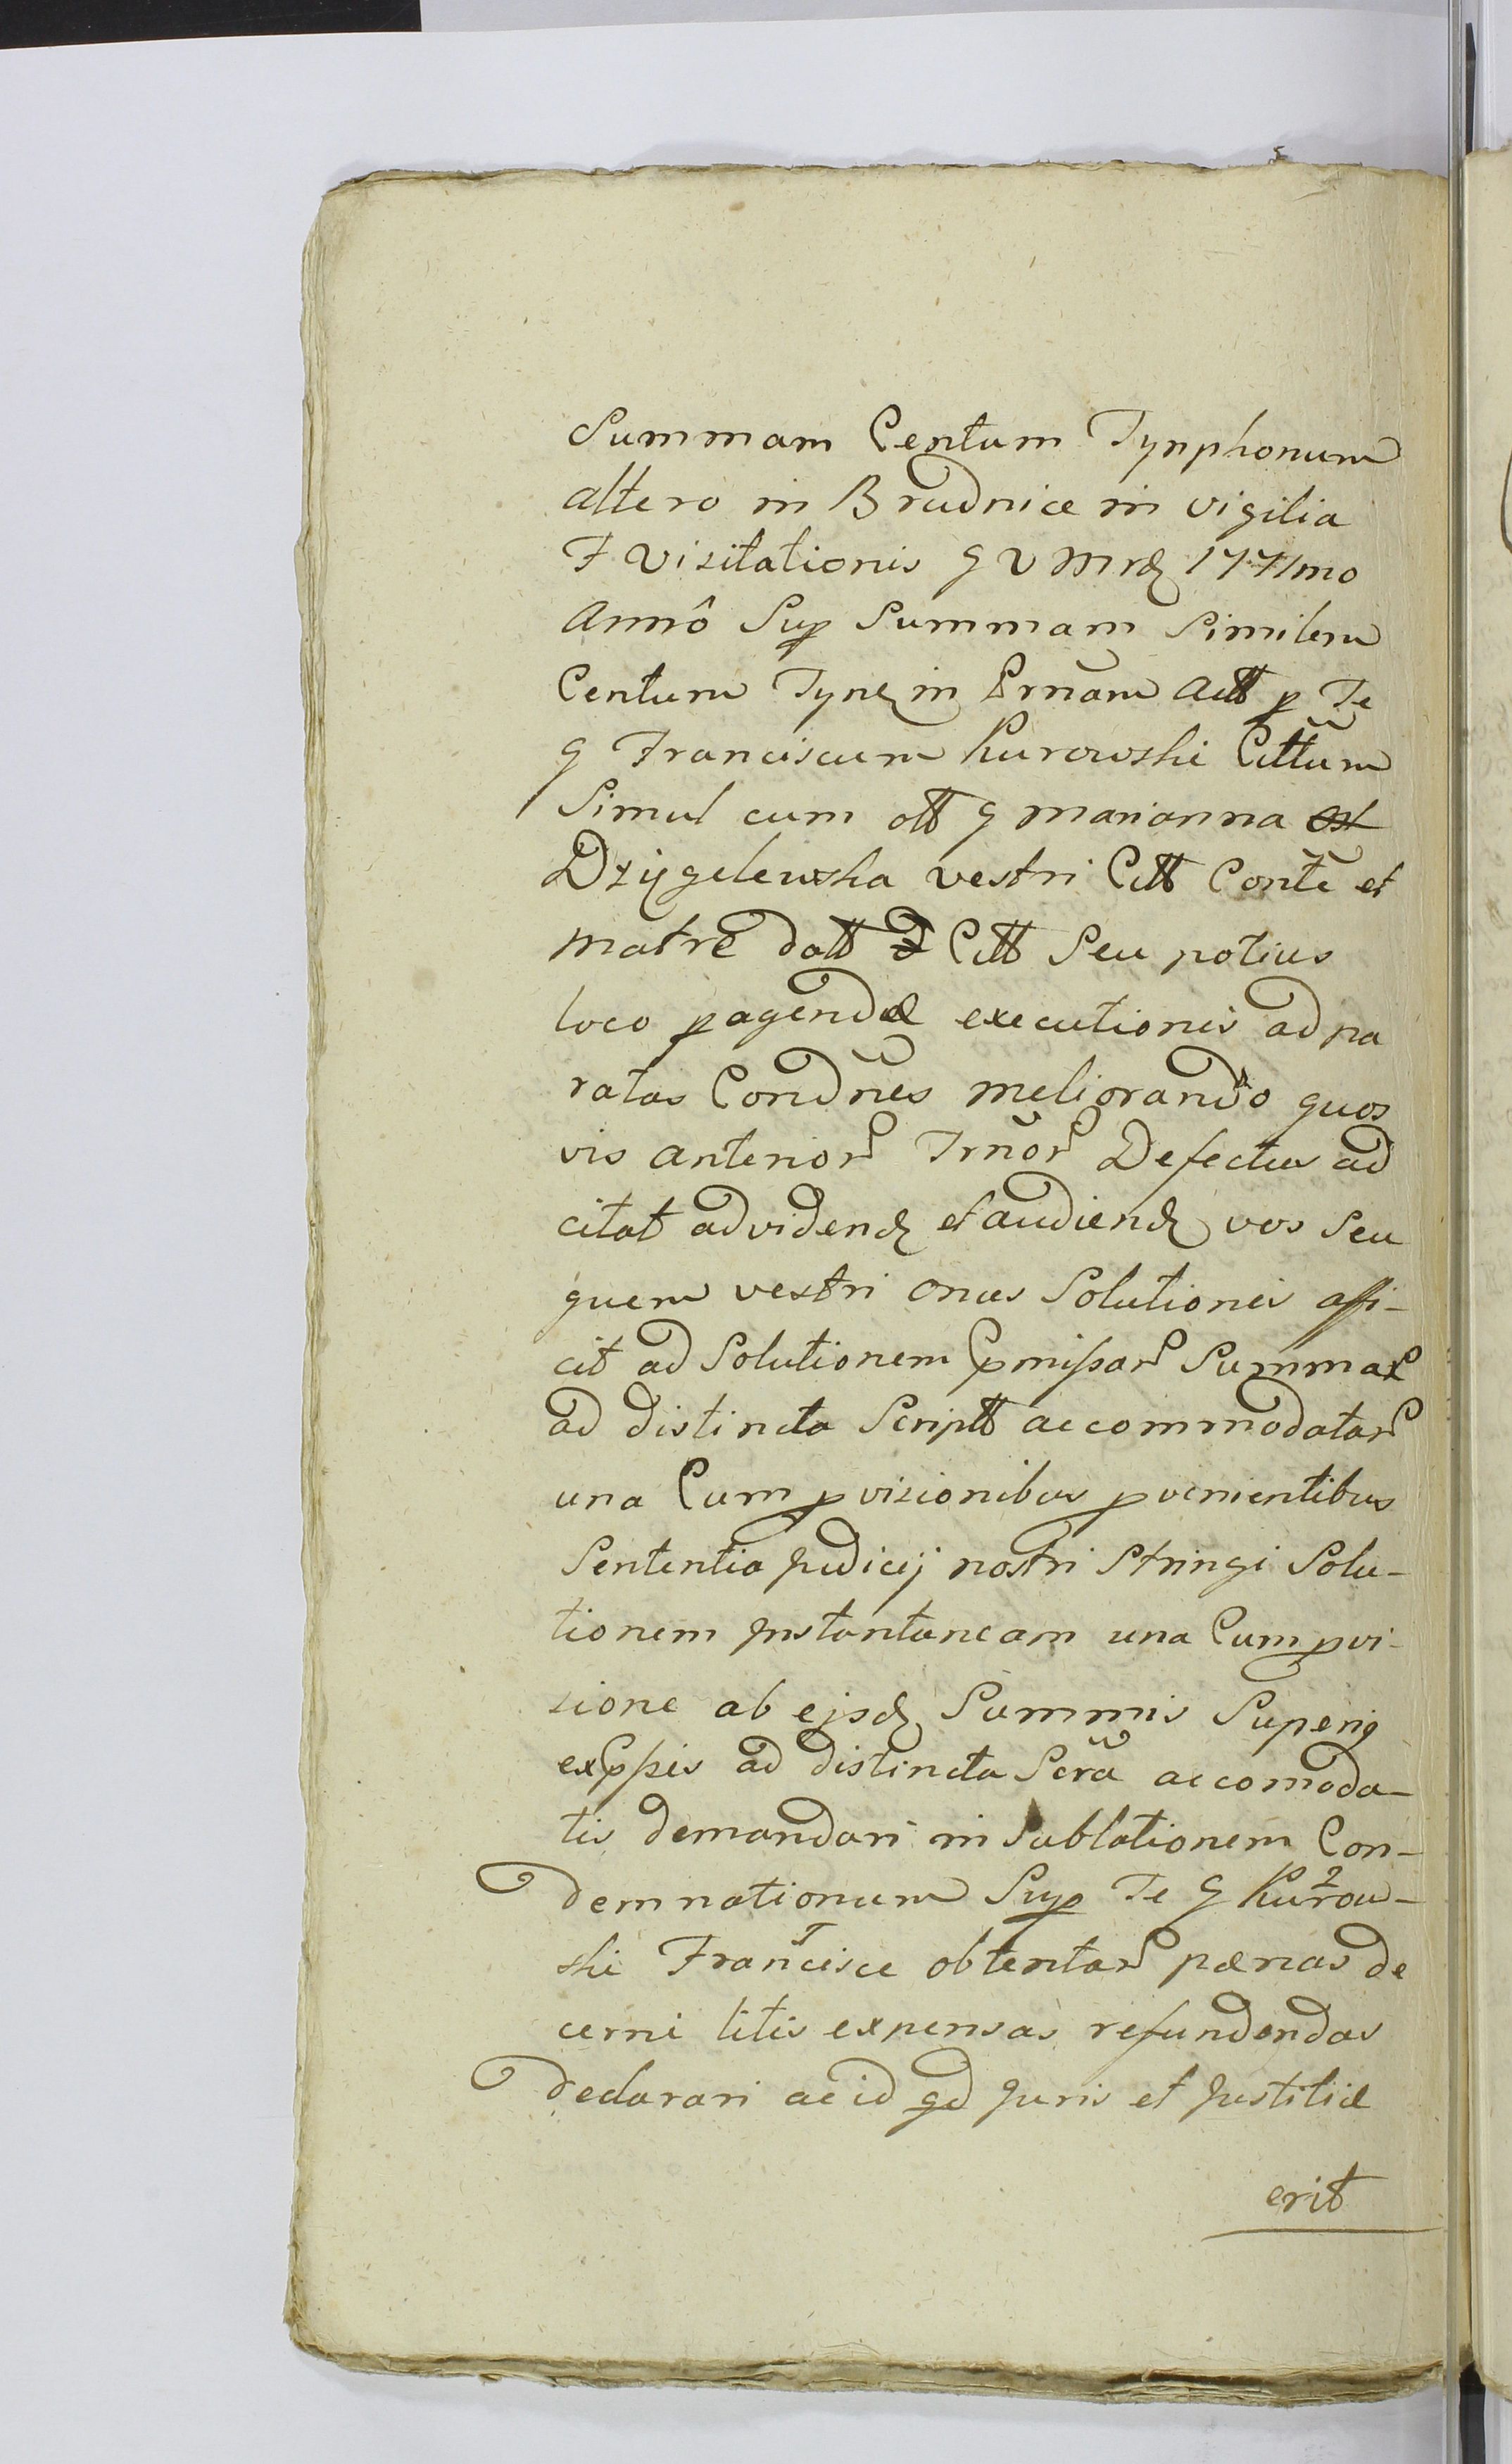 Summam Centum Tynphonum
altero in Brudnice in vigilia
F Visitationis G V Mrӕ 1771mo
Annô Sup Summam Similem
Centum Tyn in Prnam Actt p Te
G Franciscum Kurowski Cittum
Simul cum ott G Marianna
Dzięgelewska vestri Citt Conte et
Matre datt Citt Seu potius
loco pagendæ executionis ad pa
ratas Condnes meliorando quos
vis anterior Trnor Defectus ad
citat ad vidend et audiend vos Seu
quem vestri onus Solutionis affi-
cit ad Solutionem Pmissar Summar
ad distincta Scriptt accommodatar
una Cum pvisionibus pvenientibus
Sententia Judicij nostri Stringi Solu-
tionem Instantaneam una Cum pvi-
sione ab ejsd Summis Superiq
exppsis ad distincta Scra accomoda-
tis demandari in Sublationem Con-
demnationum Sup Te G Kurow-
ski Francisce obtentar pænas de
cerni litis expensas refundendas
declarari ac id qd Juris et Justitiæ
erit